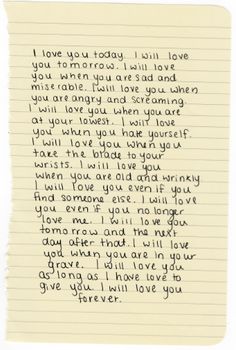 I love you today. I will love
you tomorrow. I will love
you when you are sad and
miserable. I will love you when
you are angry and screaming.
I will love you when you are
at your lowest. I will love
you when you hate yourself.
I will love you when you
take the blade to your
wrists. I will love you
when you are old and wrinkly
I will love you even if you
find someone else. I will love
you even if you no longer
love me. I will love you
tomorrow and the next
day after that. I will love
you when you are in your
grave. I will love you
as long as I have love to
give you. I will love you
forever.